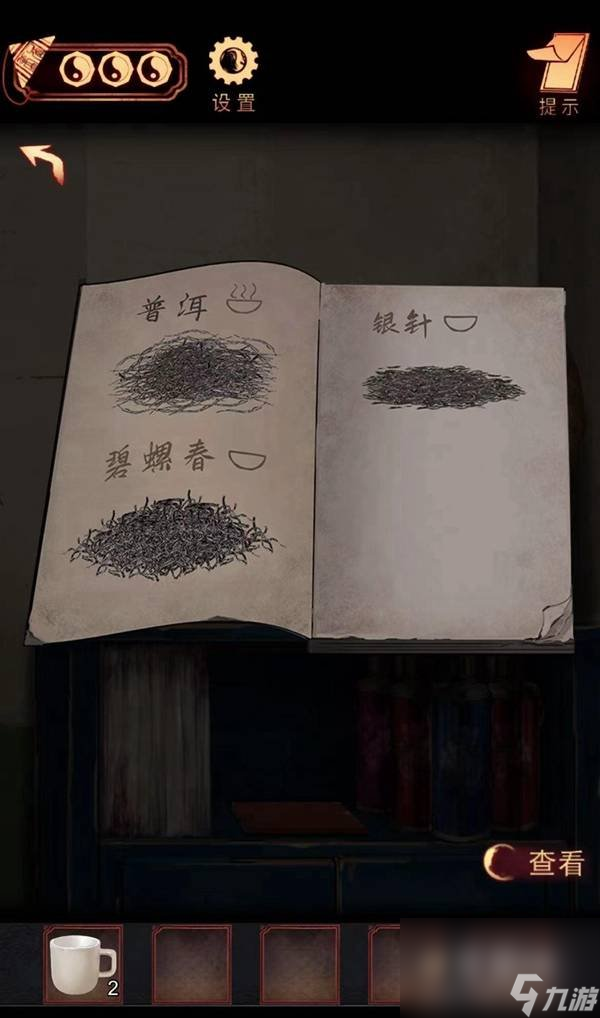 设置
提示
普洱
银针
碧螺春
查看
2
九游